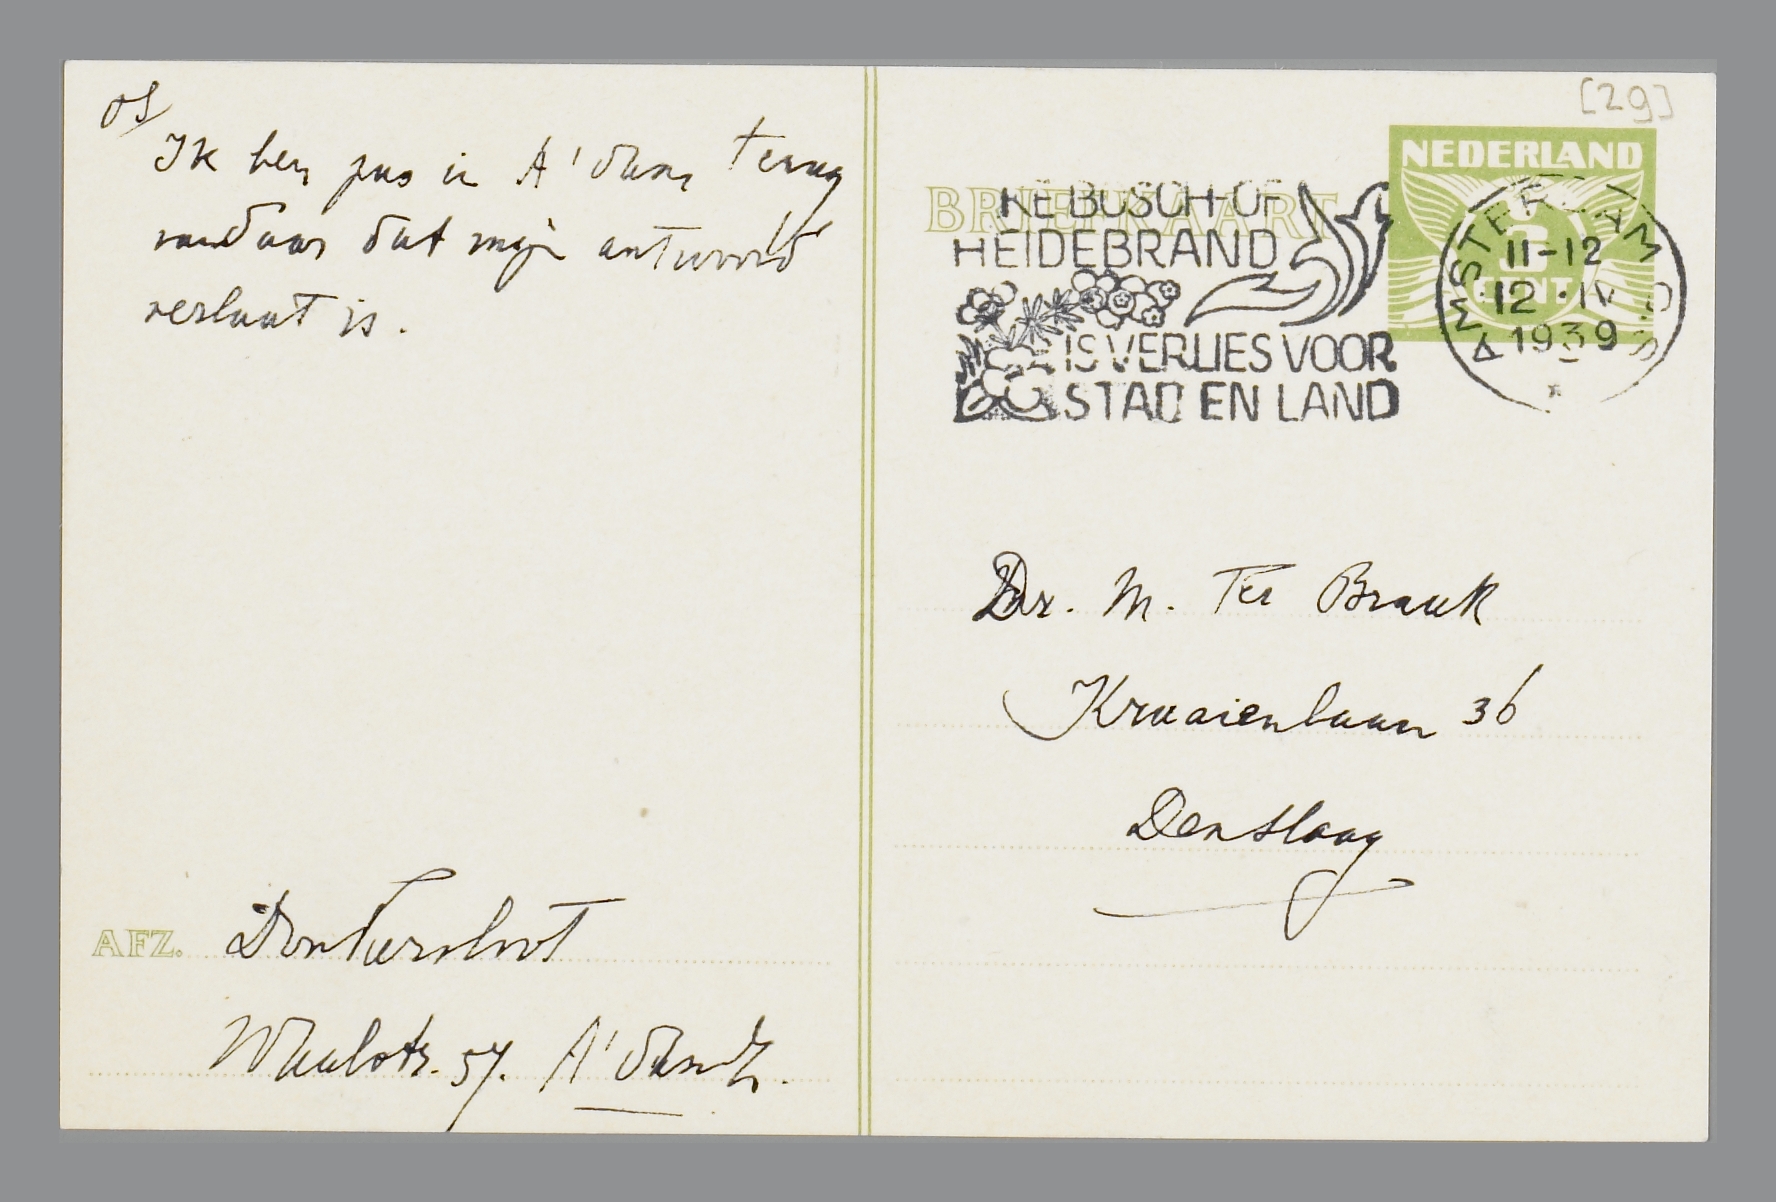 PS/
Ik ben pas in A'dam terug
vandaar dat mijn antwoord
verlaat is.
AFZ. Donkersloot
Waalstr. 57. A'dam Z.
[29]
NEDERLAND
BRIEFKAART
5
CENT
KE BOSCH OF
HEIDEBRAND
IS VERLIES VOOR
STAD EN LAND
AMSTERDAM C.S
11-12
12.IV
1939
Dr. M. Ter Braak
Kraaienlaan 36
Den Haag